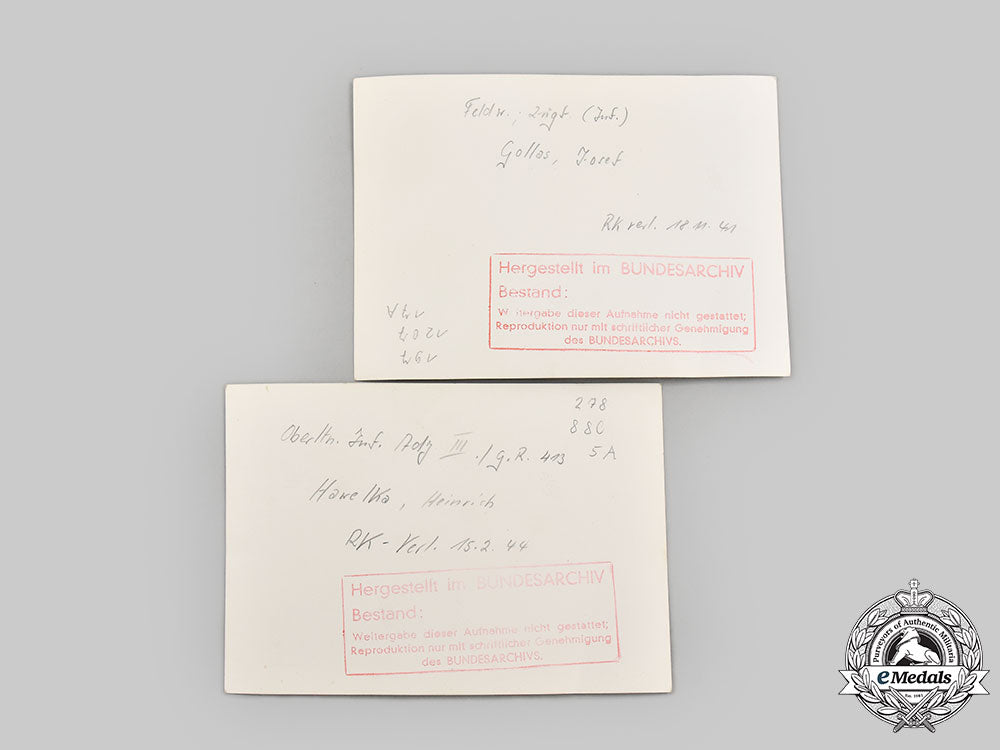 Feldw., Zugf. (Inf.)
Gollas, Josef
RK verl. 18.11.41
Hergestellt im BUNDESARCHIV
Bestand:
Weitergabe dieser Aufnahme nicht gestattet;
Reproduktion nur mit schriftlicher Genehmigung
des BUNDESARCHIVS.
278
88C
5A
Oberltn. Inf. Adj III ./G.R. 413
Hawelka, Heinrich
RK-Verl. 15.2.44
Hergestellt im BUNDESARCHIV
Bestand:
Weitergabe dieser Aufnahme nicht gestattet;
Reproduktion nur mit schriftlicher Genehmigung
des BUNDESARCHIVS.
Purveyors of Authentic Militaria
eMedals